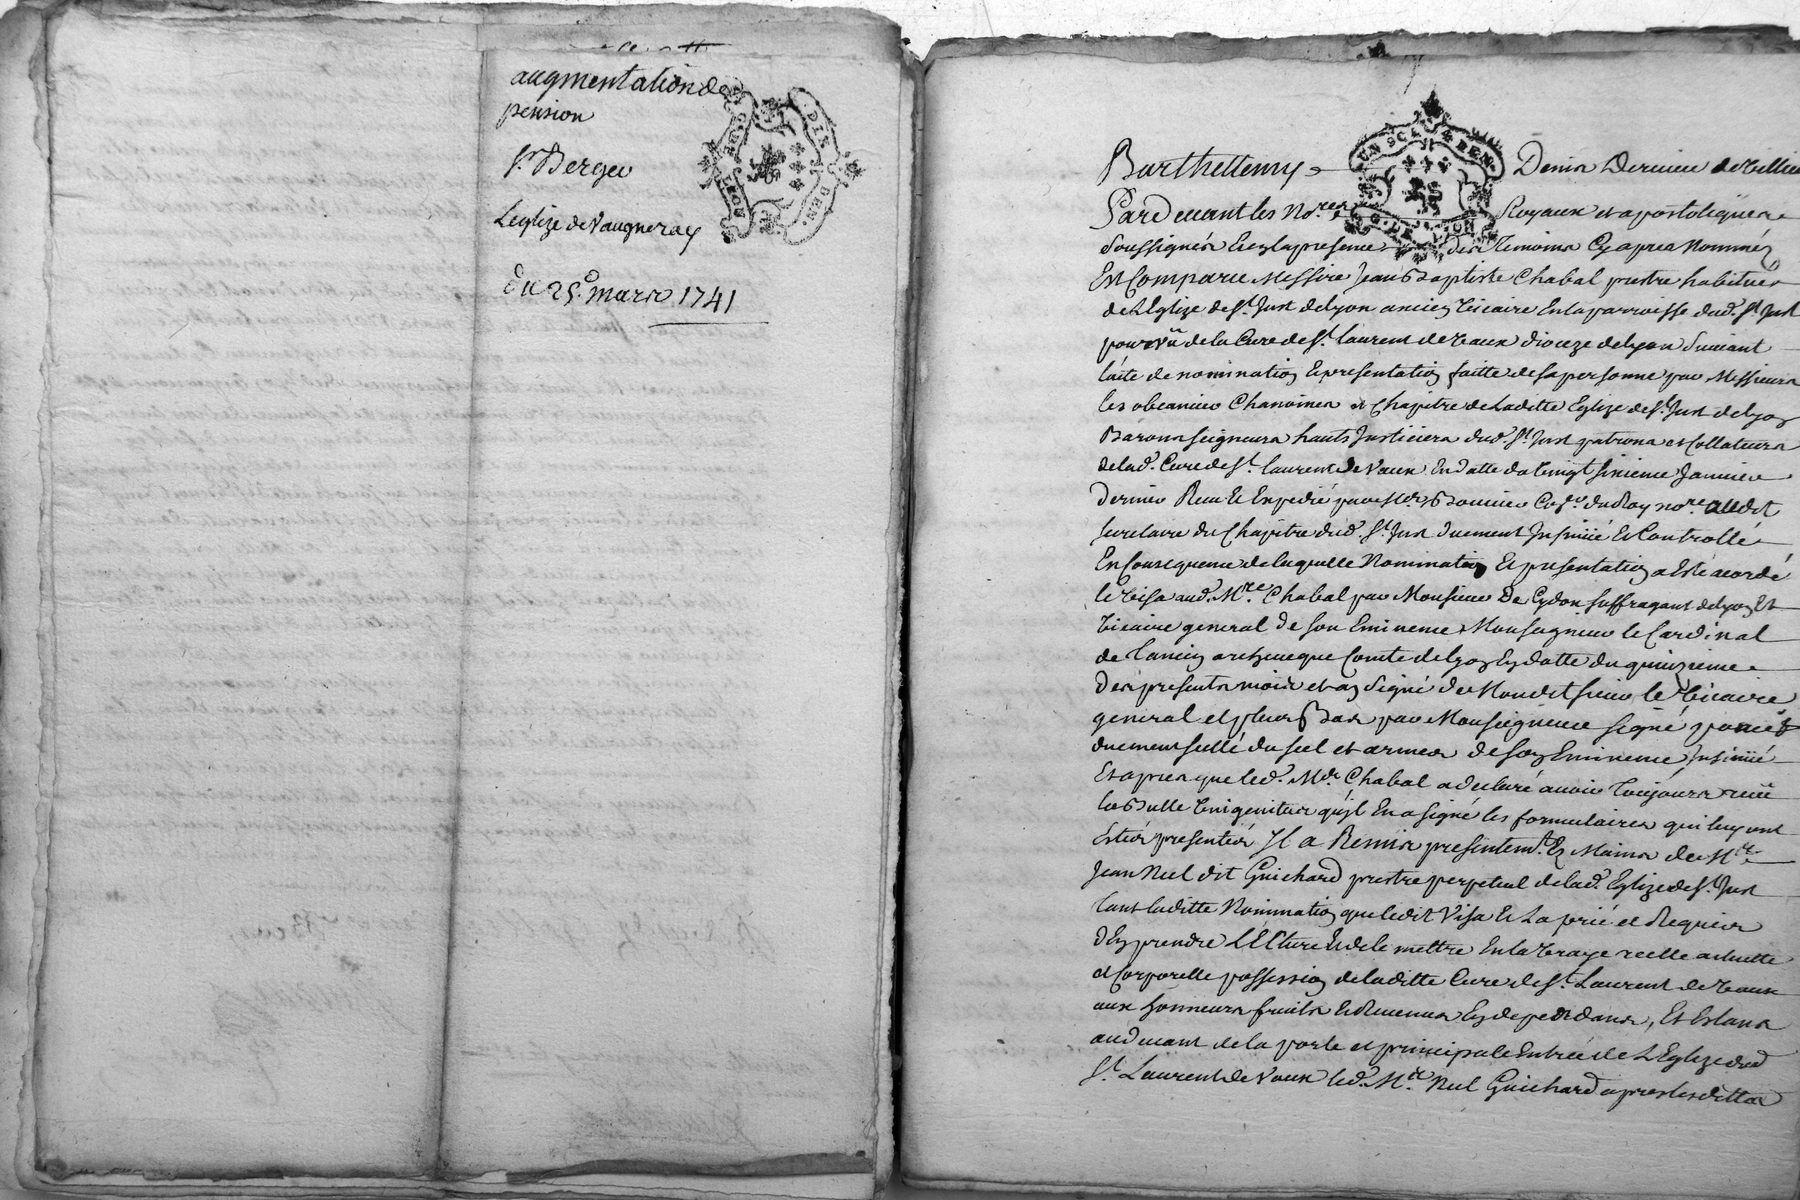 augmentation de
pension
Sr. Berger
L'eglize de Vaugneray
du 25e. mars 1741
UN SOL 4 DEN.
G. DE LYON
DIX DEN.
Barthellemy Denis Dervieu de Villieu
Pardevant les Nores. Royaux et apostoliques
soussignés Et en la presence des Temoins Cy apres Nommés
Est Comparu Messire Jean Baptiste Chabal prestre habitué
de L'Eglize de St. Just de Lyon ancien Vicaire En la parroisse dud. St. Just
pourvû de la Cure de St. Laurent de Vaux dioceze de Lyon Suivant
l'acte de nomination Et presentation faitte de sa personne par Messieurs
les obeancier Chanoines et Chapitre de Laditte Eglize de St. Just de Lyon
Barons seigneurs hauts Justiciers dud. St. Just patrons et Collateurs
de lad. Cure de St. Laurent de Vaux En datte du Vingt sixieme Janvier
dernier Receu Et Expedié par Me. Con. du Roy nore. audit
secretaire du Chapitre dud. St. Just duement Insinué Et Controllé
En Consequence de laquelle Nomination Et presentation a Esté acordé
le Visa aud. Mre. Chabal par Monsieur De Cydon suffragant de Lyon Et
Vicaire general de son Eminence Monseigneur le Cardinal
de Tancin archeveque Comte de Lyon En datte du quinzieme
des presents mois et an Signé de Mondit sieur le Vicaire
general et plus Bas par Monseigneur signé
duement sellé du scel et armes de son Eminence, Insinué
Et apres que led. Mre. Chabal a declaré avoir Toujours receu
la Bulle Unigenitus qu'il En a signé les formulaires qui luy ont
Estés presentés Il a Remis presentemt. Ez Mains de Mre.
Jean Nael dit Guichard prestre perpetuel de lad. Eglize de St. Just
tant laditte Nomination que ledit Visa Et La prié et Requis
d'En prendre LECture Et de le mettre En la Vraye reelle actuelle
et Corporelle possession de laditte Cure de St. Laurent de Vaux
aux honneurs fruits Et Revenus En dependans, Et Estans
audevant de la porte et principale Entrée de L'Eglize dud
St. Laurent de Vaux led. Mre. Guichard apres lesdittes